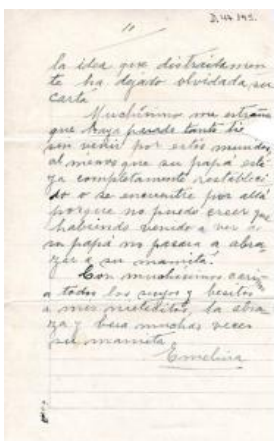 11
D.44.195.
la idea que distraidamen
te ha dejado olvidada, su
carta
Muchísimo me extraña
que haya pasado tanto tie
sin venir por estos mundos,
al menos que su papá esté
ya completamente restableci
do o se encuentre por allá
porque no puedo creer que
habiendo venido a ver a
su papá no pasara a abra
zar a su mamita.
Con muchísimos cariños
a todos los suyos y besitos
a mis nietecitos, la abra
za y besa muchas veces
su mamita
Emelina